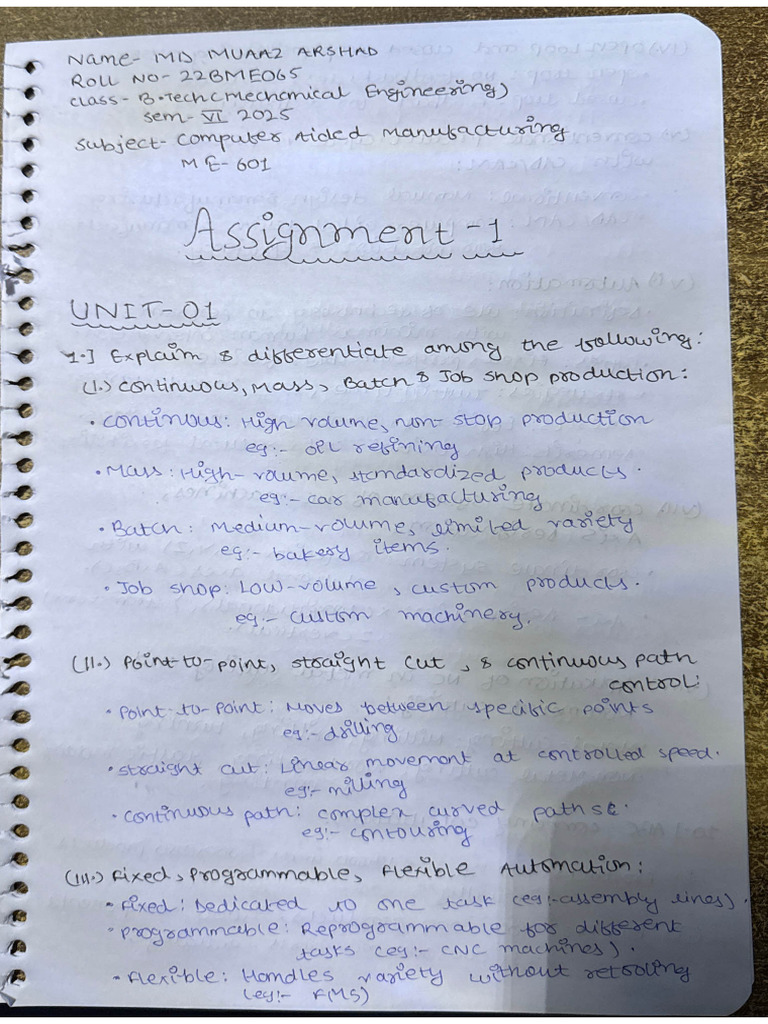 Name- MD MUAAZ ARSHAD
ROLL NO- 22BME065
class- B.Tech (Mechanical Engineering)
sem- VI 2025
Subject- Computer Aided Manufacturing
ME-601
Assignment-1
UNIT-01
1.] Explain & differentiate among the following:
(I.) Continuous, Mass, Batch & Job Shop production:
• Continous: High volume, non-stop production
eg:- oil refining
• Mass: High-volume, standardized products.
eg:- car manufacturing
• Batch: Medium-volume, limited variety
eg:- bakery items.
• Job shop: Low-volume, custom products.
eg:- custom machinery.
(II.) Point-to-point, straight cut, & continuous path
control:
• Point-to-Point: Moves between specific points
eg:- drilling
• straight cut: Linear movement at controlled speed.
eg:- milling
• continuous path: complex curved paths.
eg:- contouring
(III.) Fixed, Programmable, Flexible Automation:
• Fixed: Dedicated to one task (eg:- assembly lines).
• Programmable: Reprogrammable for different
tasks (eg:- CNC machines).
• Flexible: Handles variety without retooling
(eg:- FMS)